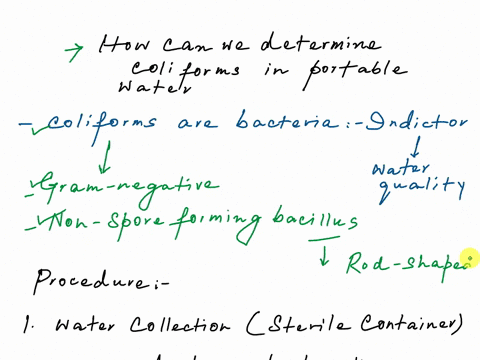 → How can we determine
coliforms in portable
water
- coliforms are bacteria:- Indictor
water
quality
- Gram-negative
- Non-spore forming bacillus
Rod-shaped
Procedure:-
1. Water Collection (Sterile Container)